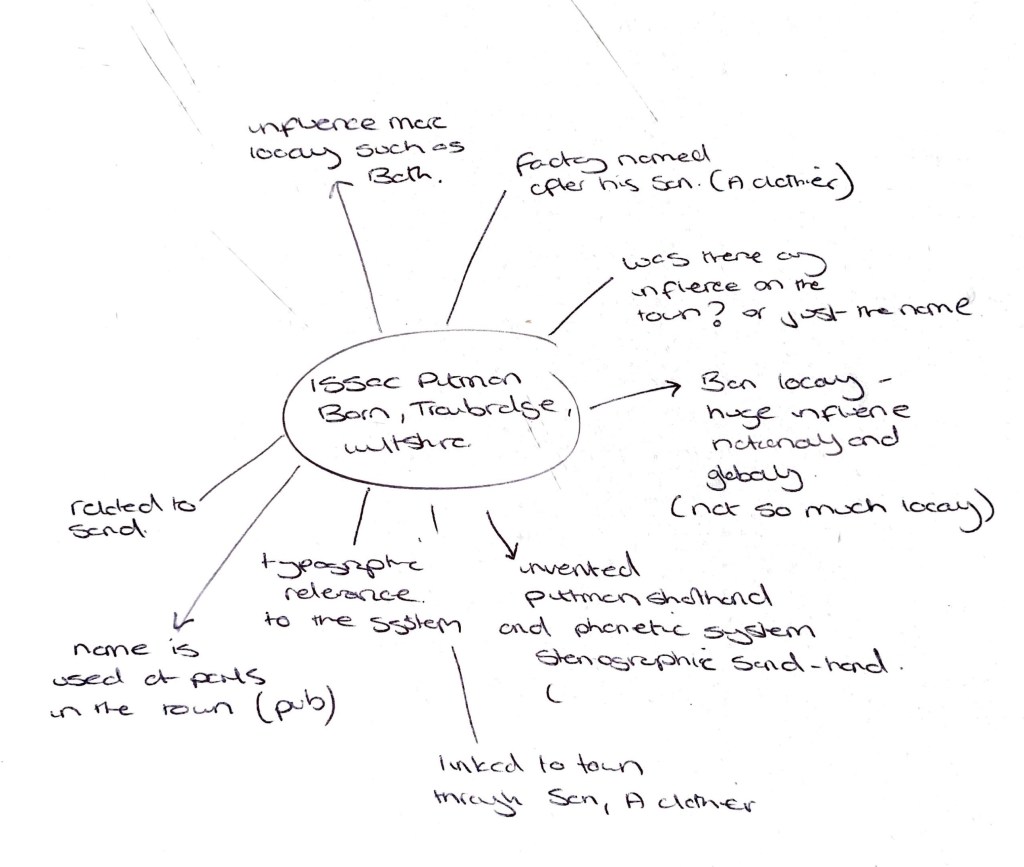 influence more
localy such as
Bath.
factory named
after his son. (A clothier)
was there any
inflence on the
town? or just the name
Issac Pitman
Born, Trowbridge,
wiltshire.
Born localy -
huge influene
nationaly and
globaly.
(not so much localy)
related to
sound.
typographic
relevance.
to the system
invented
pittman shothand
and phonetic system
stenographic sound-hand.
(
name is
used at parts
in the town (pub)
linked to town
through son, A clothier